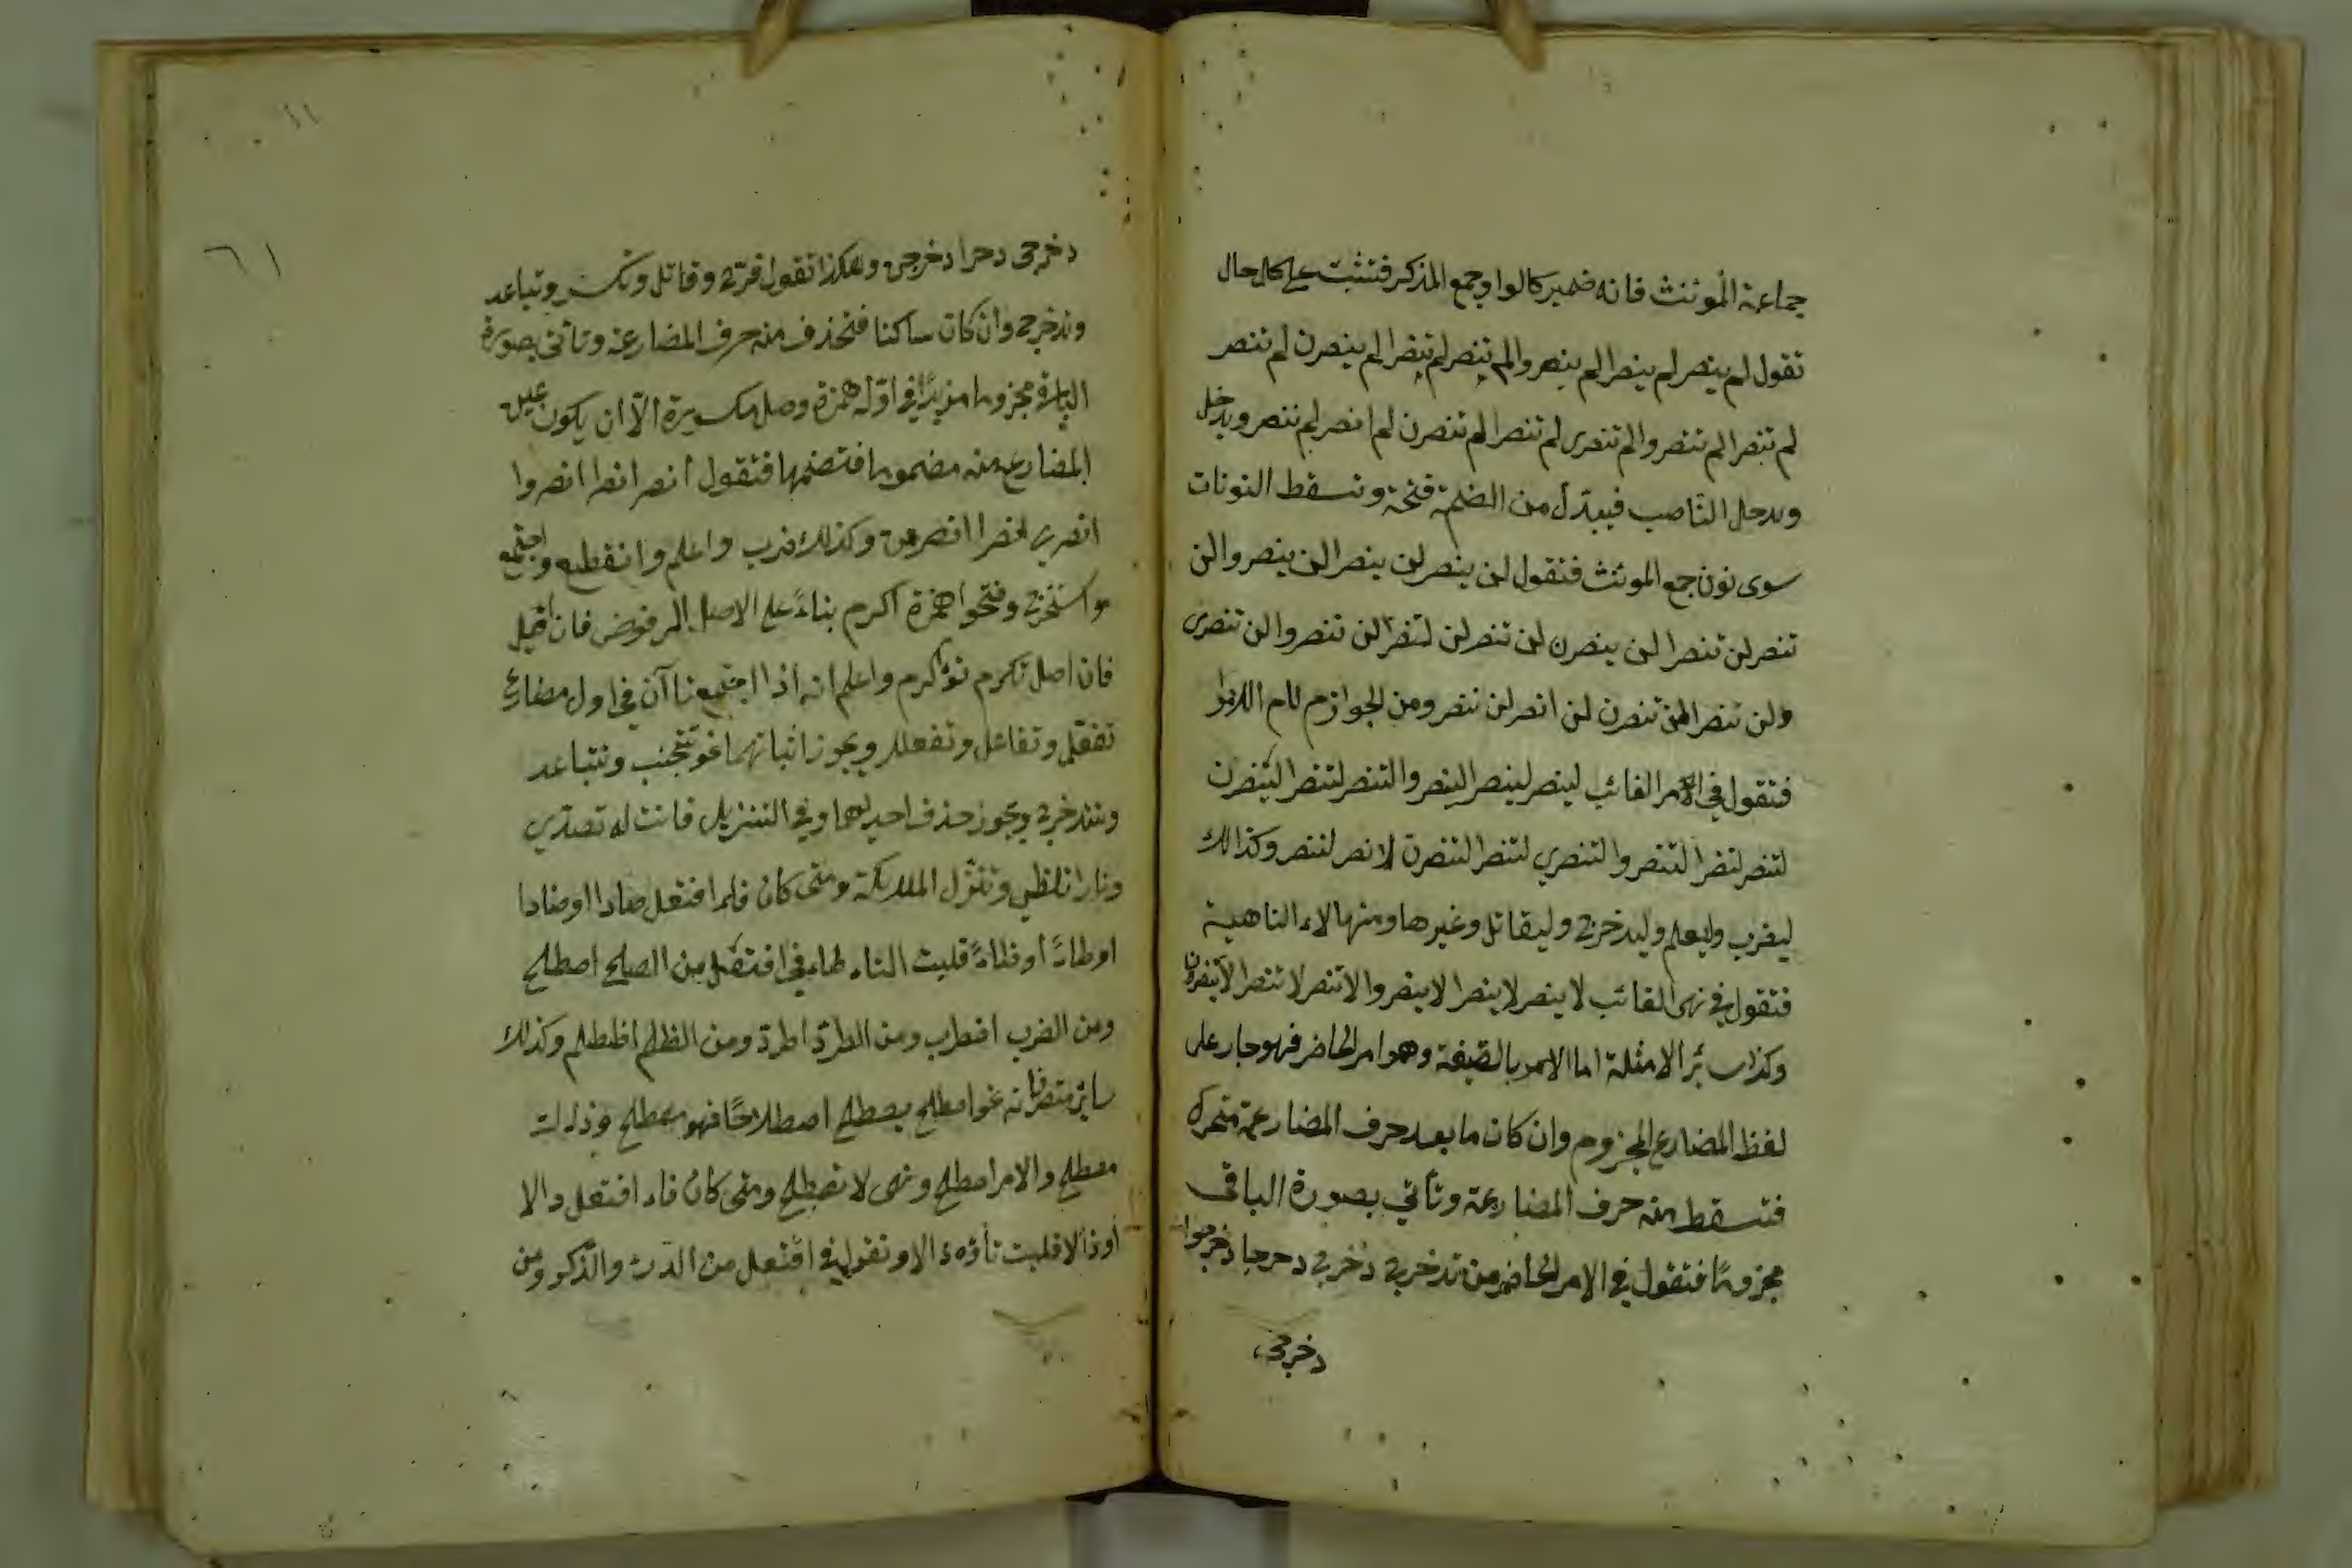 جماعة المؤنث فانه ضمير كالواو جمع المذكر فتثبت على كل حال
تقول لم ينصر لم ينصرا لم ينصروا لم تنصر لم تنصرا لم ينصرن لم تنصر
لم تنصرا لم تنصروا لم تنصرى لم تنصرا لم تنصرن لم انصر لم ننصر ويدخل
ويدخل الناصب فيبدل من الضمة فتحة وتسقط النونات
سوى نون جمع المونث فتقول لن ينصر لن ينصرا لن ينصروا لن
تنصر لن تنصرا لن ينصرن لن تنصر لن تنصرا لن تنصروا لن تنصرى
ولن تنصرا لن تنصرن لن انصر لن ننصر ومن الجوازم لام الامر
فتقول في الامر الغائب لينصر لينصرا لينصروا لتنصر لتنصرا لينصرن
لتنصر لتنصرا لتنصروا لتنصري لتنصرا لتنصرن لانصر لننصر وكذالك
ليضرب وليعلم وليدخرج وليقاتل وغيرها ومنها لاء الناهية
فتقول في نهى الغائب لا ينصر لا ينصرا لا ينصروا لا تنصر لا تنصرا لا ينصرن
وكذا سائر الامثلة اما الامر بالصيغة وهو امر الحاضر فهو جار على
لفظ المضارع المجزوم وان كان ما بعد حرف المضارعة متحرك
فتسقط منه حرف المضارعة وتأتي بصورة الباقى
مجزومًا فتقول في الامر الحاضر من تدخرج دخرج دحرجا دخرجوا
دخرجى
٦١
دخرجى دحرا دخرجن وهكذا تقول فرّح وقاتل وتكسر وتباعد
وتدخرج وان كان ساكنا فتحذف منه حرف المضارعة وتأتى بصورة
الباقى مجزوما مزيدًا في اوّله همزة وصل مكسورة الّا ان يكون عين
المضارع منه مضموما فتضمها فتقول انصر انصرا انصروا
انصري انصرا انصرن وكذلك اضرب واعلم وانقطع واجتمع
واستخرج وفتحوا همزة اكرم بناءً على الاصل المرفوض فان قيل
فان اصل تكرم تؤكرم واعلم انه اذا اجتمع تاآن في اول مضارع
تفعّل وتفاعل وتفعلل ويجوز اثباتهما نحو تتجنب وتتباعد
وتتدخرج ويجوز حذف احديهما وفي التنزيل فانت له تصدّى
ونارا تلظى وتنزّل الملائكة ومتى كان فاء افتعل صادا اوضادا
اوطاءً أو ظاءً قلبت التاء طاء في افتعل من الصلح اصطلح
ومن الضرب اضطرب ومن الطرد اطرد ومن الظلم اظطلم وكذلك
ساير متصرفاته نحو اصطلح يصطلح اصطلاحًا فهو مصطلح وذاك
مصطلح والامر اصطلح ونهى لا تصطلح ومتى كان فاء افتعل دالا
أو ذالا قلبت تاؤه دالا وتقول في افتعل من الدرء والذكر ومن